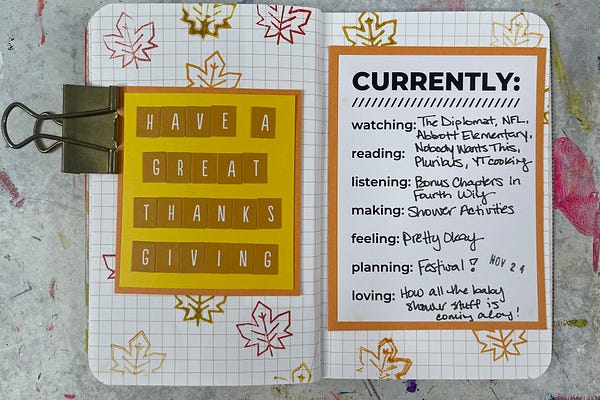 HAVE A
GREAT
THANKS
GIVING
CURRENTLY:
watching: The Diplomat, NFL,
Abbott Elementary,
reading: Nobody Wants This,
Pluribus, YT cooking
listening: Bonus Chapters in
Fourth Wing
making: Shower Activities
feeling: Pretty Okay
planning: Festival! NOV 24
loving: How all the baby
shower stuff is
coming along!